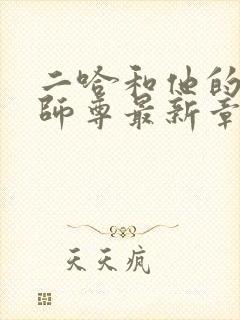 二哈和他的
師尊最新章
天天疯